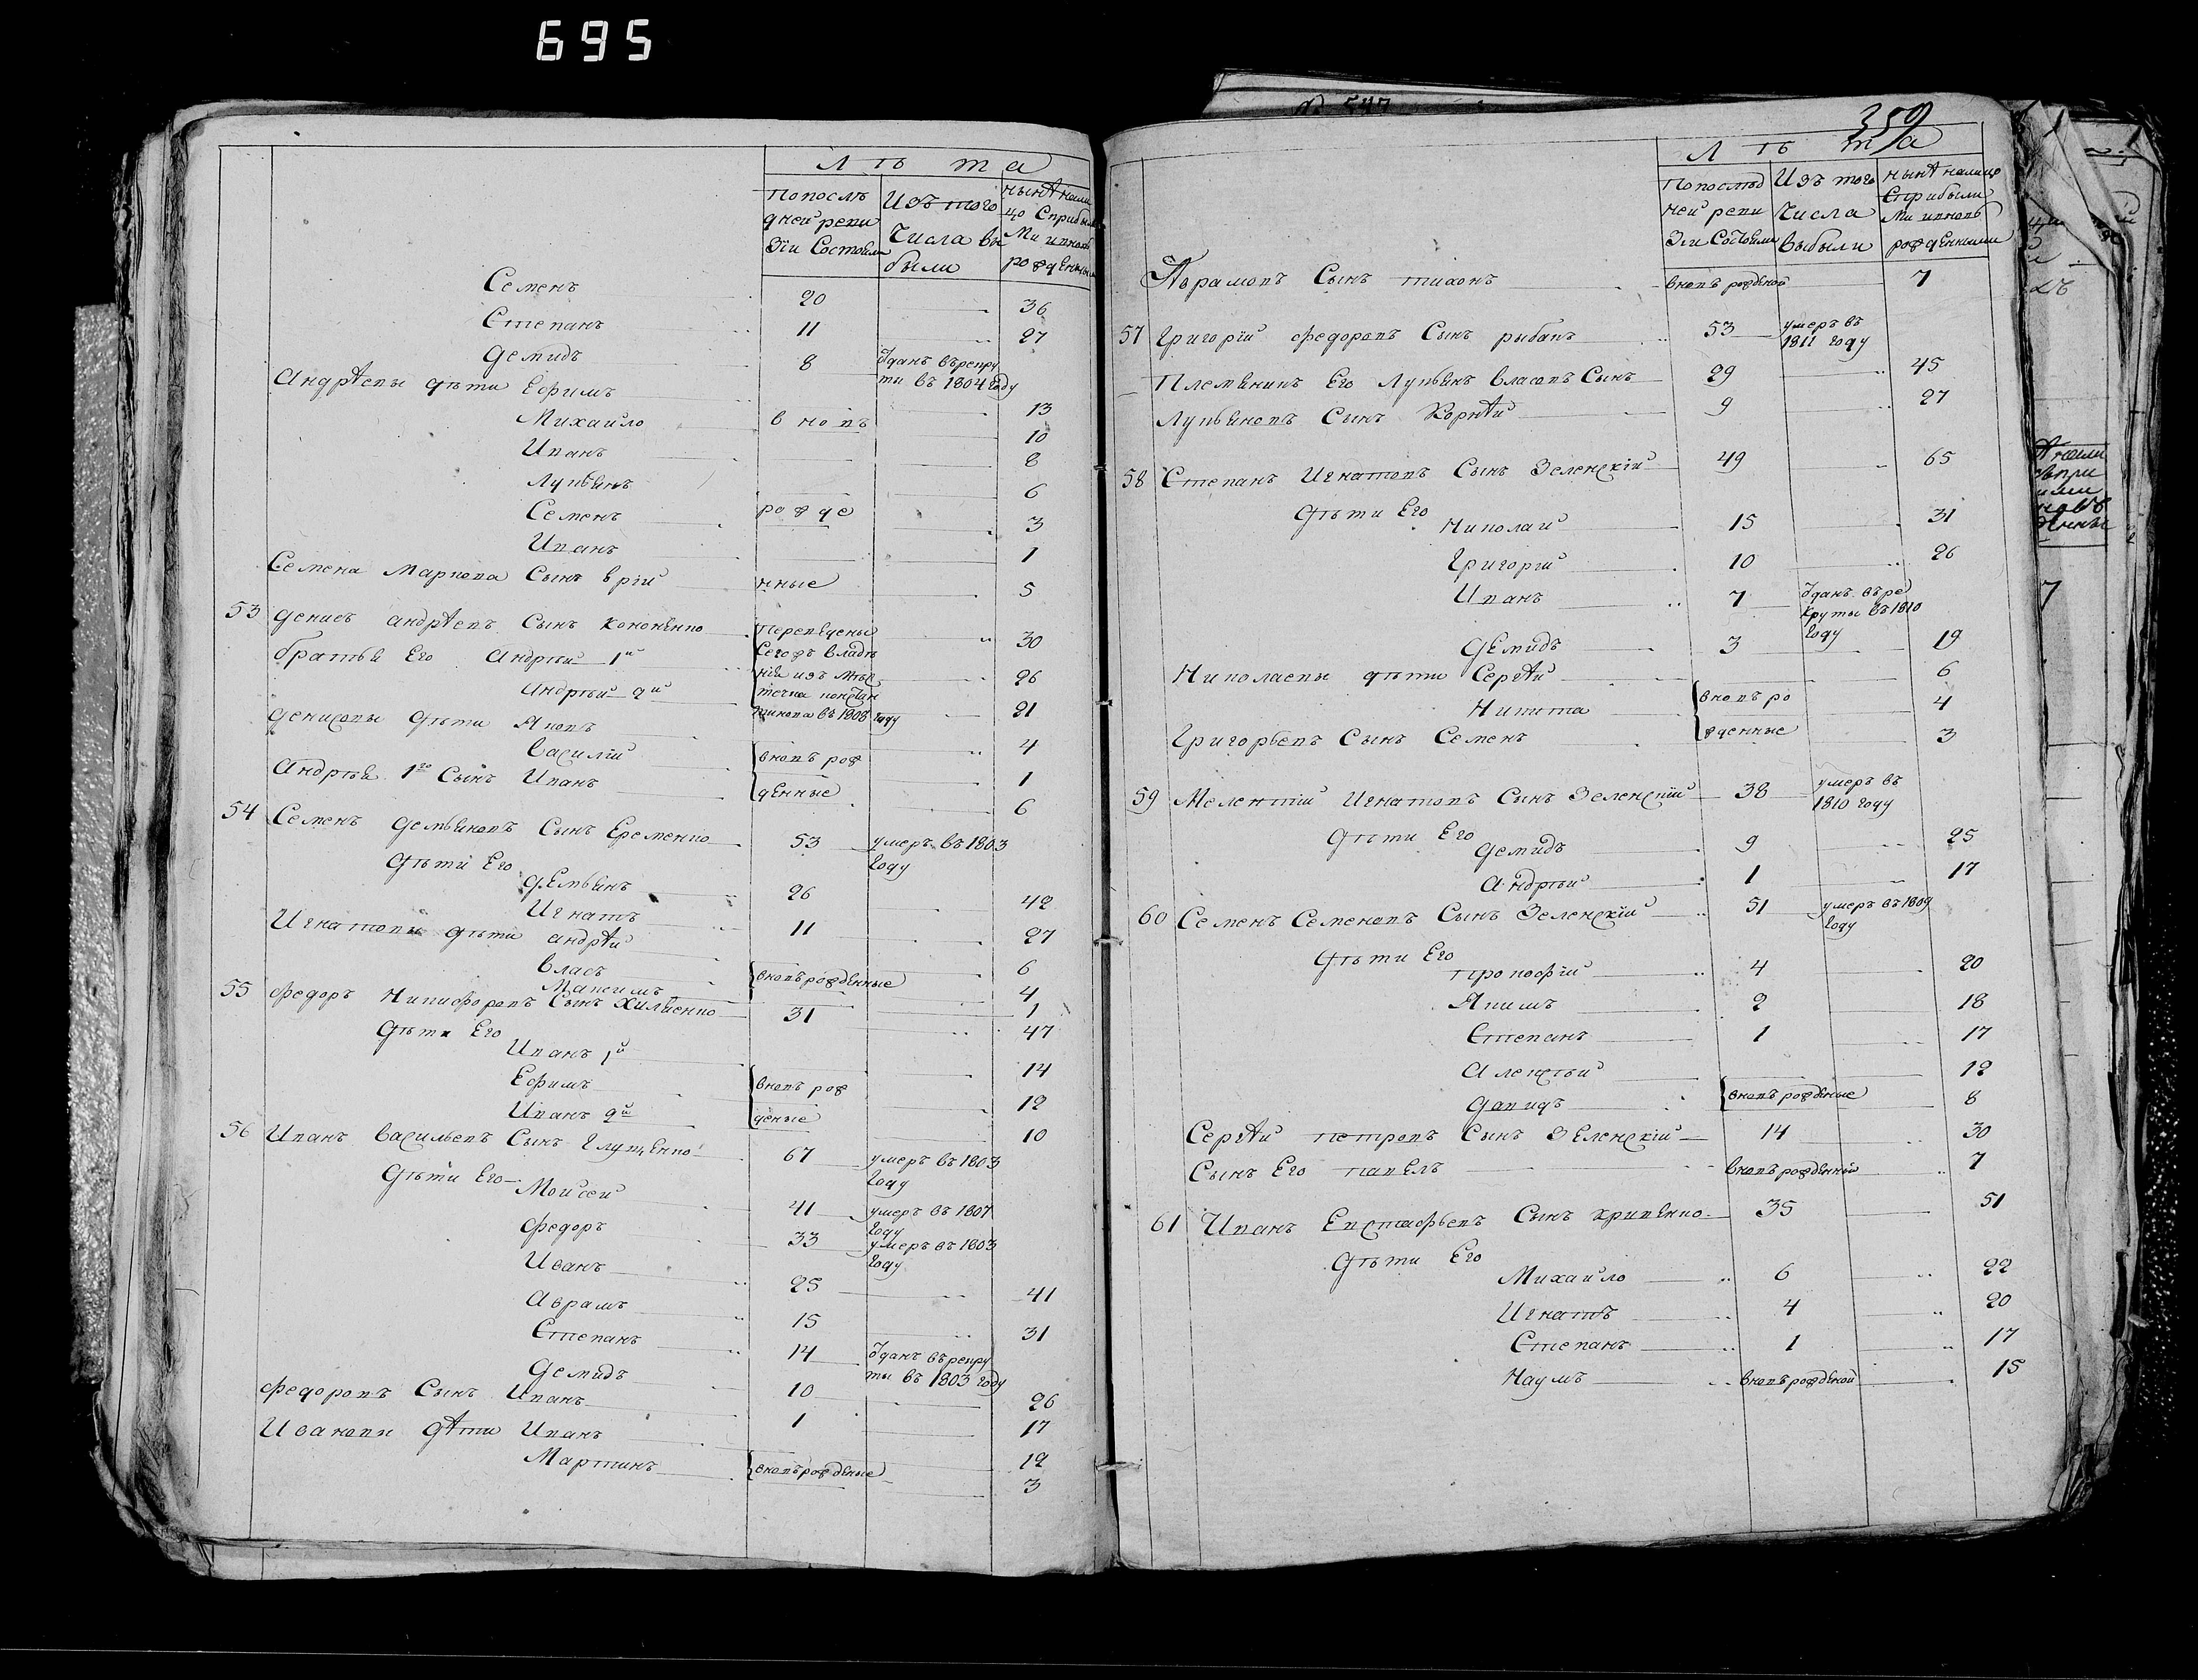 695
Лѣта
По послѣ
дней реви
зіи Состояли
Изъ того
Числа вы
были
Нынѣ нали
цо Съ прибыл
Ми и вновь
рожденным
Семенъ 20 36
Степанъ 11 27
Демидъ 8 Ѿданъ въ рекру
ти въ 1804 году
Андрѣевы дѣти Ефимъ 13
Михайло вновь 10
Иванъ 8
Лукьянъ 6
Семенъ рожде 3
Иванъ 1
Семена Маркова Сынъ врій нные 5
53 Денисъ андрѣевъ Сынъ Кононенко Переведены 30
братья Его Андрѣй 1й Сегожъ владѣ 26
Андрѣй 2й нія изъ мѣс
течка констан 21
тинова въ 1808 году
Денисовы дѣти Яковъ 4
Василій вновь рож 1
Андрѣя 1го Сынъ Иванъ денные 6
54 Семенъ Демьяновъ Сынъ Еременко 53 умеръ въ 1803
году
Дѣти Его
Демьянъ 26 42
Игнатъ 11 27
Игнатовы дѣти андрѣй 6
Власъ вновь рожденные 4
Максимъ 1
55 Федоръ Никифоровъ Сынъ Хилченко 31 47
Дѣти Его
Иванъ 1й 14
Ефимъ вновь рож 12
Иванъ 2й деные 10
56 Иванъ Васильевъ Сынъ Глущенко 67 умеръ въ 1803
году
Дѣти Его
Мойсей 41 умеръ въ 1807
году
Федоръ 33 умеръ въ 1803
году
Иванъ 25 41
Аврамъ 15 31
Степанъ 14 Ѿданъ въ рекру
ты въ 1803 году
Демидъ 10 26
Федоровъ Сынъ Иванъ 1 17
Ивановы дѣти Иванъ 12
Мартинъ вновь рожденые 3
359
Лѣта
По послѣд
ней реви
зіи Состояли
Изъ того
Числа
выбыли
Нынѣ налицо
Съ прибыли
Ми и вновь
рожденными
Аврамовъ Сынъ тихонъ вновь рожденой 7
57 Григорій Федоровъ Сынъ рыбакъ 53 умеръ въ
1811 году
Племяникъ Его Лукьянъ власовъ Сынъ 29 45
Лукьяновъ Сынъ Корнѣй 9 27
58 Степанъ Игнатовъ Сынъ Зеленскій 49 65
Дѣти Его
Николай 15 31
Григорій 10 26
Иванъ 7 Ѿданъ въ ре
круты въ 1810
году
Демидъ 3 19
Николаевы дѣти Сергѣй 6
Никита вновь ро 4
Григорьевъ Сынъ Семенъ жденные 3
59 Мелентій Игнатовъ Сынъ Зеленскій 38 умеръ въ
1810 году
Дѣти Его
Демидъ 9 25
Андрѣй 1 17
60 Семенъ Семеновъ Сынъ Зеленскій 51 умеръ въ 1809
году
Дѣти Его
Прокофій 4 20
Якимъ 2 18
Степанъ 1 17
Алексѣй 12
Давидъ вновь рожденые 8
Сергѣй петровъ Сынъ Зеленскій 14 30
Сынъ Его павелъ вновь рожденный 7
61 Иванъ Евстафьевъ Сынъ Кривенко 35 51
Дѣти Его
Михайло 6 22
Игнатъ 4 20
Степанъ 1 17
Наумъ вновь рожденой 15